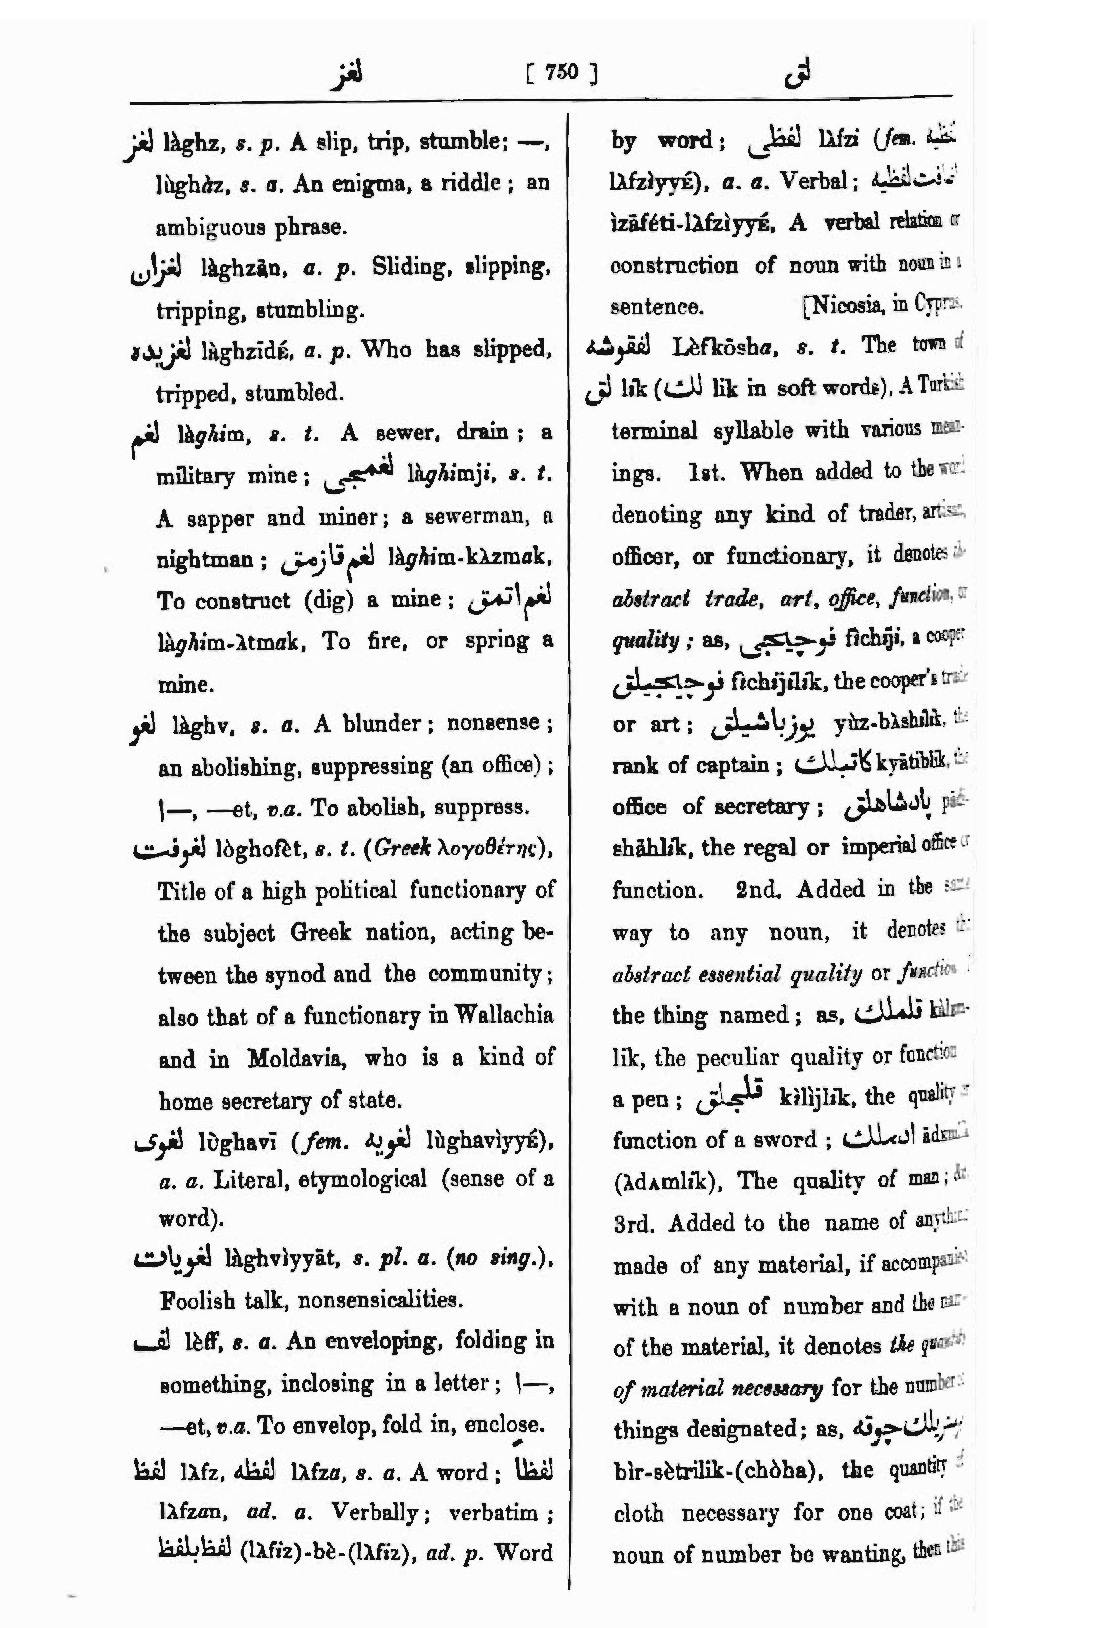 لغز [ 750 ] لق
لغز làghz, s. p. A slip, trip, stumble; —,
lùghàz, s. a. An enigma, a riddle; an
ambiguous phrase.
لغزان làghzān, a. p. Sliding, slipping,
tripping, stumbling.
لغزيده làghzīdÉ, a. p. Who has slipped,
tripped, stumbled.
لغم làghim, s. t. A sewer, drain; a
military mine; لغمجى làghimji, s. t.
A sapper and miner; a sewerman, a
nightman; لغم قازمق làghim-kλzmak,
To construct (dig) a mine; لغم اتمق
làghim-λtmak, To fire, or spring a
mine.
لغو làghv, s. a. A blunder; nonsense;
an abolishing, suppressing (an office);
ا—, —et, v.a. To abolish, suppress.
لغوفت lòghofèt, s. t. (Greek λογοθέτης),
Title of a high political functionary of
the subject Greek nation, acting be-
tween the synod and the community;
also that of a functionary in Wallachia
and in Moldavia, who is a kind of
home secretary of state.
لغوى lùghavī (fem. لغويه lùghavìyyÉ),
a. a. Literal, etymological (sense of a
word).
لغويات làghvìyyāt, s. pl. a. (no sing.),
Foolish talk, nonsensicalities.
لف lèff, s. a. An enveloping, folding in
something, inclosing in a letter; ا—,
—et, v.a. To envelop, fold in, enclose.
لفظ lλfz, لفظه lλfza, s. a. A word; لفظا
lλfzan, ad. a. Verbally; verbatim;
لفظ بلفظ (lλfíz)-bè-(lλfíz), ad. p. Word
by word; لفظى lλfzi (fem.
lλfzìyyÉ), a. a. Verbal;
ìzāféti-lλfzìyyÉ, A verbal relation or
construction of noun with noun in a
sentence. [Nicosia, in Cyprus.
لفقوشه Lèfkōsha, s. t. The town of
لق lık (لك lik in soft words), A Turkish
terminal syllable with various mean-
ings. 1st. When added to the word
denoting any kind of trader, artisan,
officer, or functionary, it denotes the
abstract trade, art, office, function, or
quality; as, فوچيجى fichíji, a cooper
فوچيجيلق fichíjílík, the cooper's trade
or art; يوزباشيلق yùz-bλshílík, the
rank of captain; كاتبلك kyātiblik, the
office of secretary; پادشاهلق pād-
shāhlík, the regal or imperial office or
function. 2nd. Added in the same
way to any noun, it denotes the
abstract essential quality or function
the thing named; as, قلملك kàlem-
lik, the peculiar quality or function
a pen; قلجلق kìlìjlík, the quality or
function of a sword; ادملك
(λdᴀmlík), The quality of man;
3rd. Added to the name of anything
made of any material, if accompanied
with a noun of number and the name
of the material, it denotes the quantity
of material necessary for the number
things designated; as, چوقه
bìr-sètrilik-(chòha), the quantity of
cloth necessary for one coat; if the
noun of number be wanting, then this